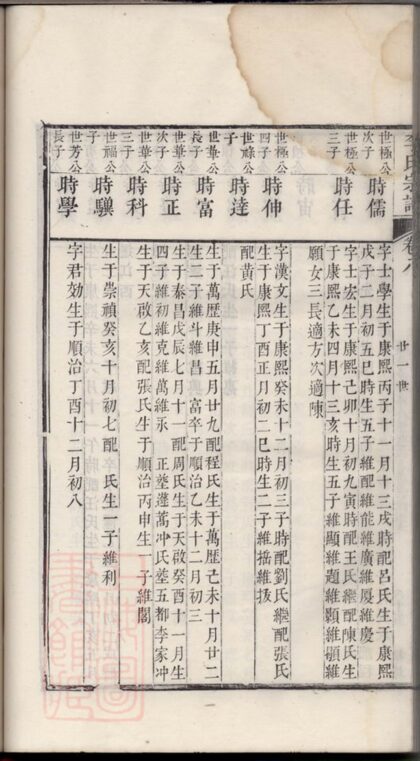 氏宗譜
卷八
廿一世
世極公
次子
時儒
字士學生于康熙丙子十一月十三戌時配呂氏生于康熙
戊子二月初五巳時生五子維配維能維廣維厦維慶
世極公
三子
時任
字士宏生于康熙己卯十月初九寅時配王氏繼配陳氏生
于康熙乙未四月十三亥時生五子維顯維題維顥維頫維
願女三長適方次適陳
世極公
四子
時伸
字漢文生于康熙癸未十二月初三子時配劉氏繼配張氏
生于康熙丁酉正月初二巳時生二子維㨗維拔
世祿公
子
時達
配黃氏
世華公
長子
時富
生于萬歷庚申五月廿九配程氏生于萬歷己未十月廿二
生二子維斗維昌富卒于順治乙未十二月初三
世華公
次子
時正
生于泰昌戊辰七月十一配周氏生于天啟癸酉十一月生
四子維初維克維萬維永 正塟蓮萬冲氏塟五都李家冲
世華公
三子
時科
生于天啟乙亥配張氏生于順治丙申生一子維閣
世福公
子
時驥
生于崇禎癸亥十月初七配 氏生一子維利
世芳公
長子
時學
字君効生于順治丁酉十二月初八